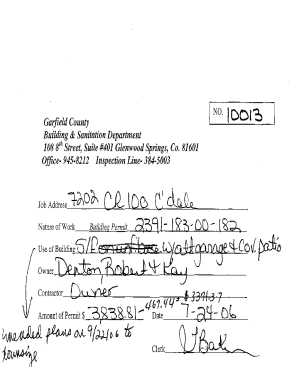 NO. 10013
Garfield County
Building & Sanitation Department
108 8th Street, Suite #401 Glenwood Springs, Co. 81601
Office- 945-8212 Inspection Line- 384-5003
Job Address 7202 CR 100 C'dale
Nature of Work Building Permit 2391-183-00-182
Use of Building S/F w/att garage & Cov. patio
Owner Denton, Robert & Kay
Contractor Owner
467.44 $ 3371.37
Amount of Permit $ 3,838.81 Date 7-24-06
amended plans on 9/22/06 to
Clerk